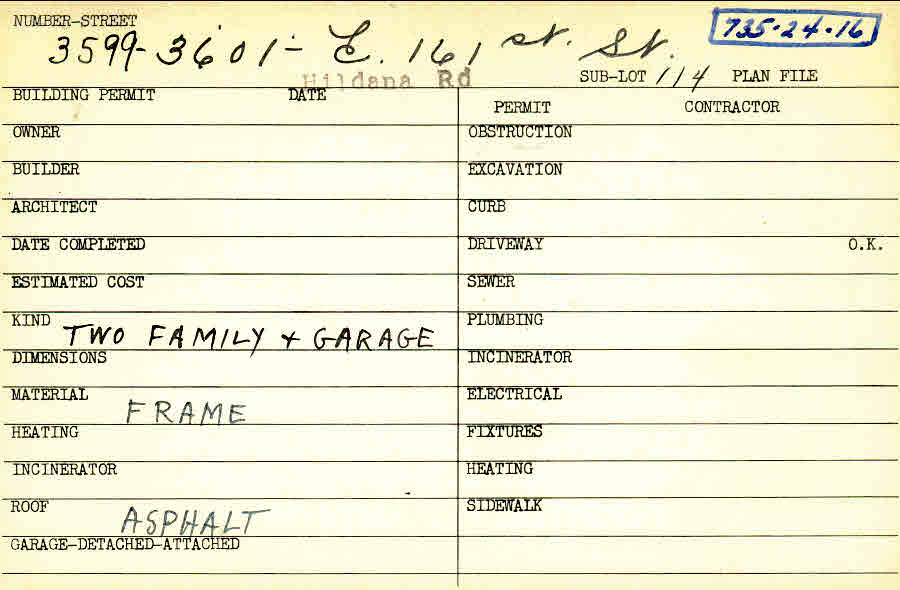 NUMBER-STREET
735-24-16
3599-3601- E. 161 st. St.
Hildana Rd
SUB-LOT 114 PLAN FILE
BUILDING PERMIT DATE
PERMIT CONTRACTOR
OWNER
OBSTRUCTION
BUILDER
EXCAVATION
ARCHITECT
CURB
DATE COMPLETED
DRIVEWAY O.K.
ESTIMATED COST
SEWER
KIND TWO FAMILY + GARAGE
PLUMBING
DIMENSIONS
INCINERATOR
MATERIAL FRAME
ELECTRICAL
HEATING
FIXTURES
INCINERATOR
HEATING
ROOF ASPHALT
SIDEWALK
GARAGE-DETACHED-ATTACHED